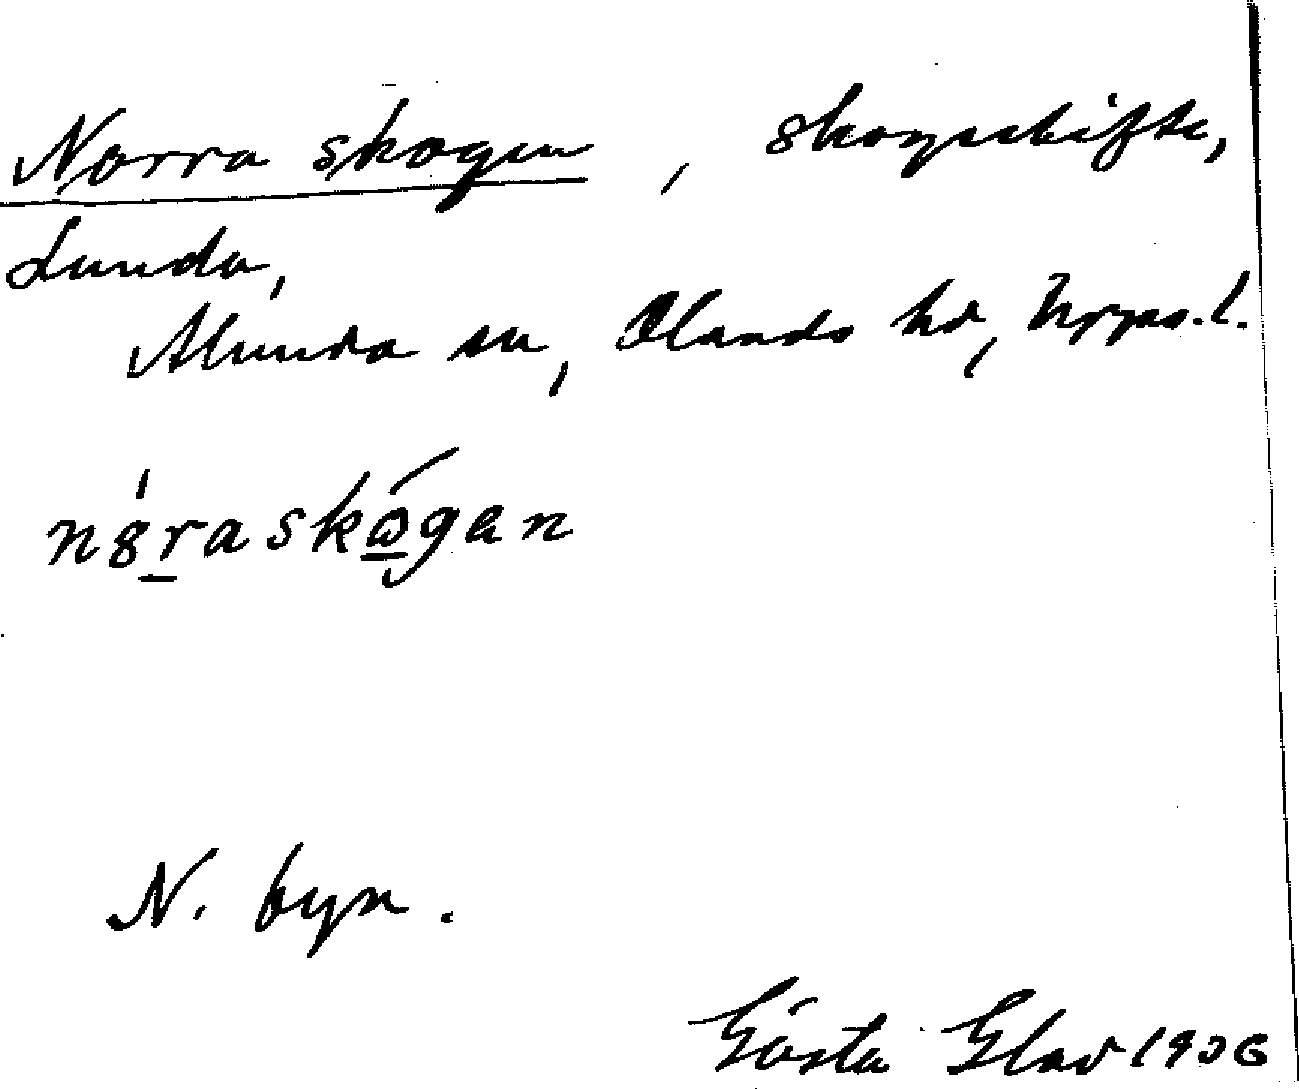 Norra skogen, skogsskifte,
Lunda,
Alunda sn, Olands hd, Upps. l.
nǿraskógan
N. byn.
Gösta Glav 1936